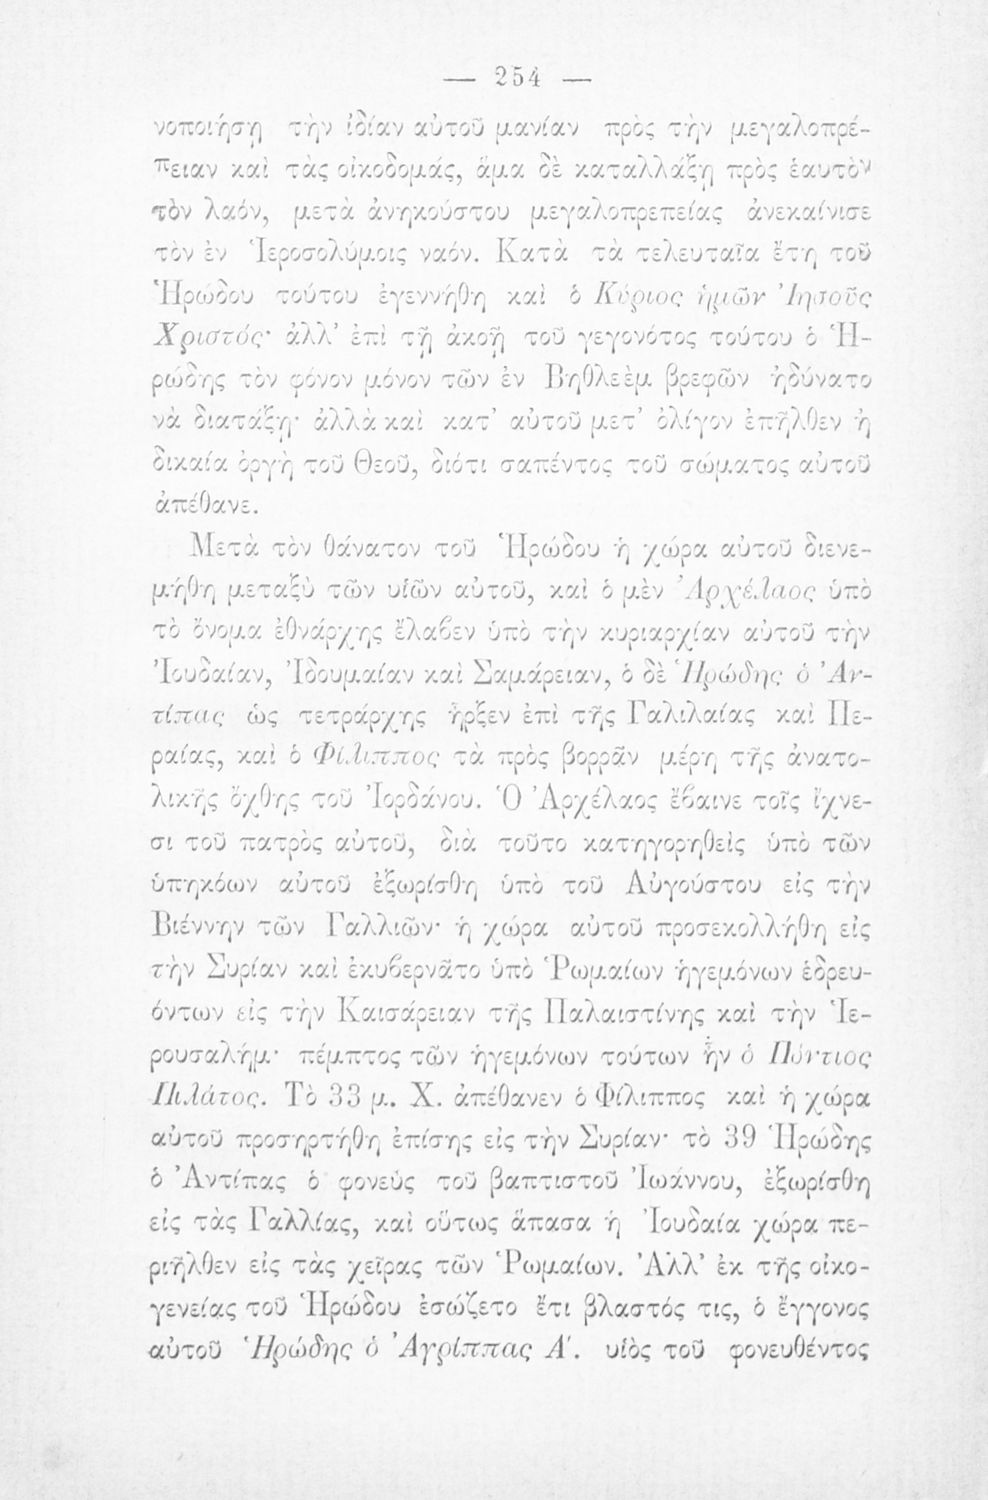 — 254 —
νοποιήσῃ τὴν ἰδίαν αὑτοῦ μανίαν πρὸς τὴν μεγαλοπρέ-
πειαν καὶ τὰς οἰκοδομάς, ἅμα δὲ καταλλάξῃ πρὸς ἑαυτὸν
τὸν λαόν, μετὰ ἀνηκούστου μεγαλοπρεπείας ἀνεκαίνισε
τὸν ἐν Ἱεροσολύμοις ναόν. Κατὰ τὰ τελευταῖα ἔτη τοῦ
Ἡρώδου τούτου ἐγεννήθη καὶ ὁ Κύριος ἡμῶν Ἰησοῦς
Χριστός· ἀλλ’ ἐπὶ τῇ ἀκοῇ τοῦ γεγονότος τούτου ὁ Ἡ-
ρώδης τὸν φόνον μόνον τῶν ἐν Βηθλεὲμ βρεφῶν ἠδύνατο
νὰ διατάξῃ· ἀλλὰ καὶ κατ’ αὐτοῦ μετ’ ὀλίγον ἐπῆλθεν ἡ
δικαία ὀργὴ τοῦ Θεοῦ, διότι σαπέντος τοῦ σώματος αὐτοῦ
ἀπέθανε.
Μετὰ τὸν θάνατον τοῦ Ἡρώδου ἡ χώρα αὐτοῦ διενε-
μήθη μεταξὺ τῶν υἱῶν αὐτοῦ, καὶ ὁ μὲν Ἀρχέλαος ὑπὸ
τὸ ὄνομα ἐθνάρχης ἔλαβεν ὑπὸ τὴν κυριαρχίαν αὐτοῦ τὴν
Ἰουδαίαν, Ἰδουμαίαν καὶ Σαμάρειαν, ὁ δὲ Ἡρώδης ὁ Ἀν-
τίπας ὡς τετράρχης ἦρξεν ἐπὶ τῆς Γαλιλαίας καὶ Πε-
ραίας, καὶ ὁ Φίλιππος τὰ πρὸς βορρᾶν μέρη τῆς ἀνατο-
λικῆς ὄχθης τοῦ Ἰορδάνου. Ὁ Ἀρχέλαος ἔβαινε τοῖς ἴχνε-
σι τοῦ πατρὸς αὐτοῦ, διὰ τοῦτο κατηγορηθεὶς ὑπὸ τῶν
ὑπηκόων αὐτοῦ ἐξωρίσθη ὑπὸ τοῦ Αὐγούστου εἰς τὴν
Βιέννην τῶν Γαλλιῶν· ἡ χώρα αὐτοῦ προσεκολλήθη εἰς
τὴν Συρίαν καὶ ἐκυβερνᾶτο ὑπὸ Ῥωμαίων ἡγεμόνων ἑδρευ-
όντων εἰς τὴν Καισάρειαν τῆς Παλαιστίνης καὶ τὴν Ἱε-
ρουσαλήμ· πέμπτος τῶν ἡγεμόνων τούτων ἦν ὁ Πόντιος
Πιλάτος. Τὸ 33 μ. Χ. ἀπέθανεν ὁ Φίλιππος καὶ ἡ χώρα
αὐτοῦ προσηρτήθη ἐπίσης εἰς τὴν Συρίαν· τὸ 39 Ἡρώδης
ὁ Ἀντίπας ὁ φονεὺς τοῦ βαπτιστοῦ Ἰωάννου, ἐξωρίσθη
εἰς τὰς Γαλλίας, καὶ οὕτως ἅπασα ἡ Ἰουδαία χώρα πε-
ριῆλθεν εἰς τὰς χεῖρας τῶν Ῥωμαίων. Ἀλλ’ ἐκ τῆς οἰκο-
γενείας τοῦ Ἡρώδου ἐσώζετο ἔτι βλαστός τις, ὁ ἔγγονος
αὐτοῦ Ἡρώδης ὁ Ἀγρίππας Α΄. υἱὸς τοῦ φονευθέντος